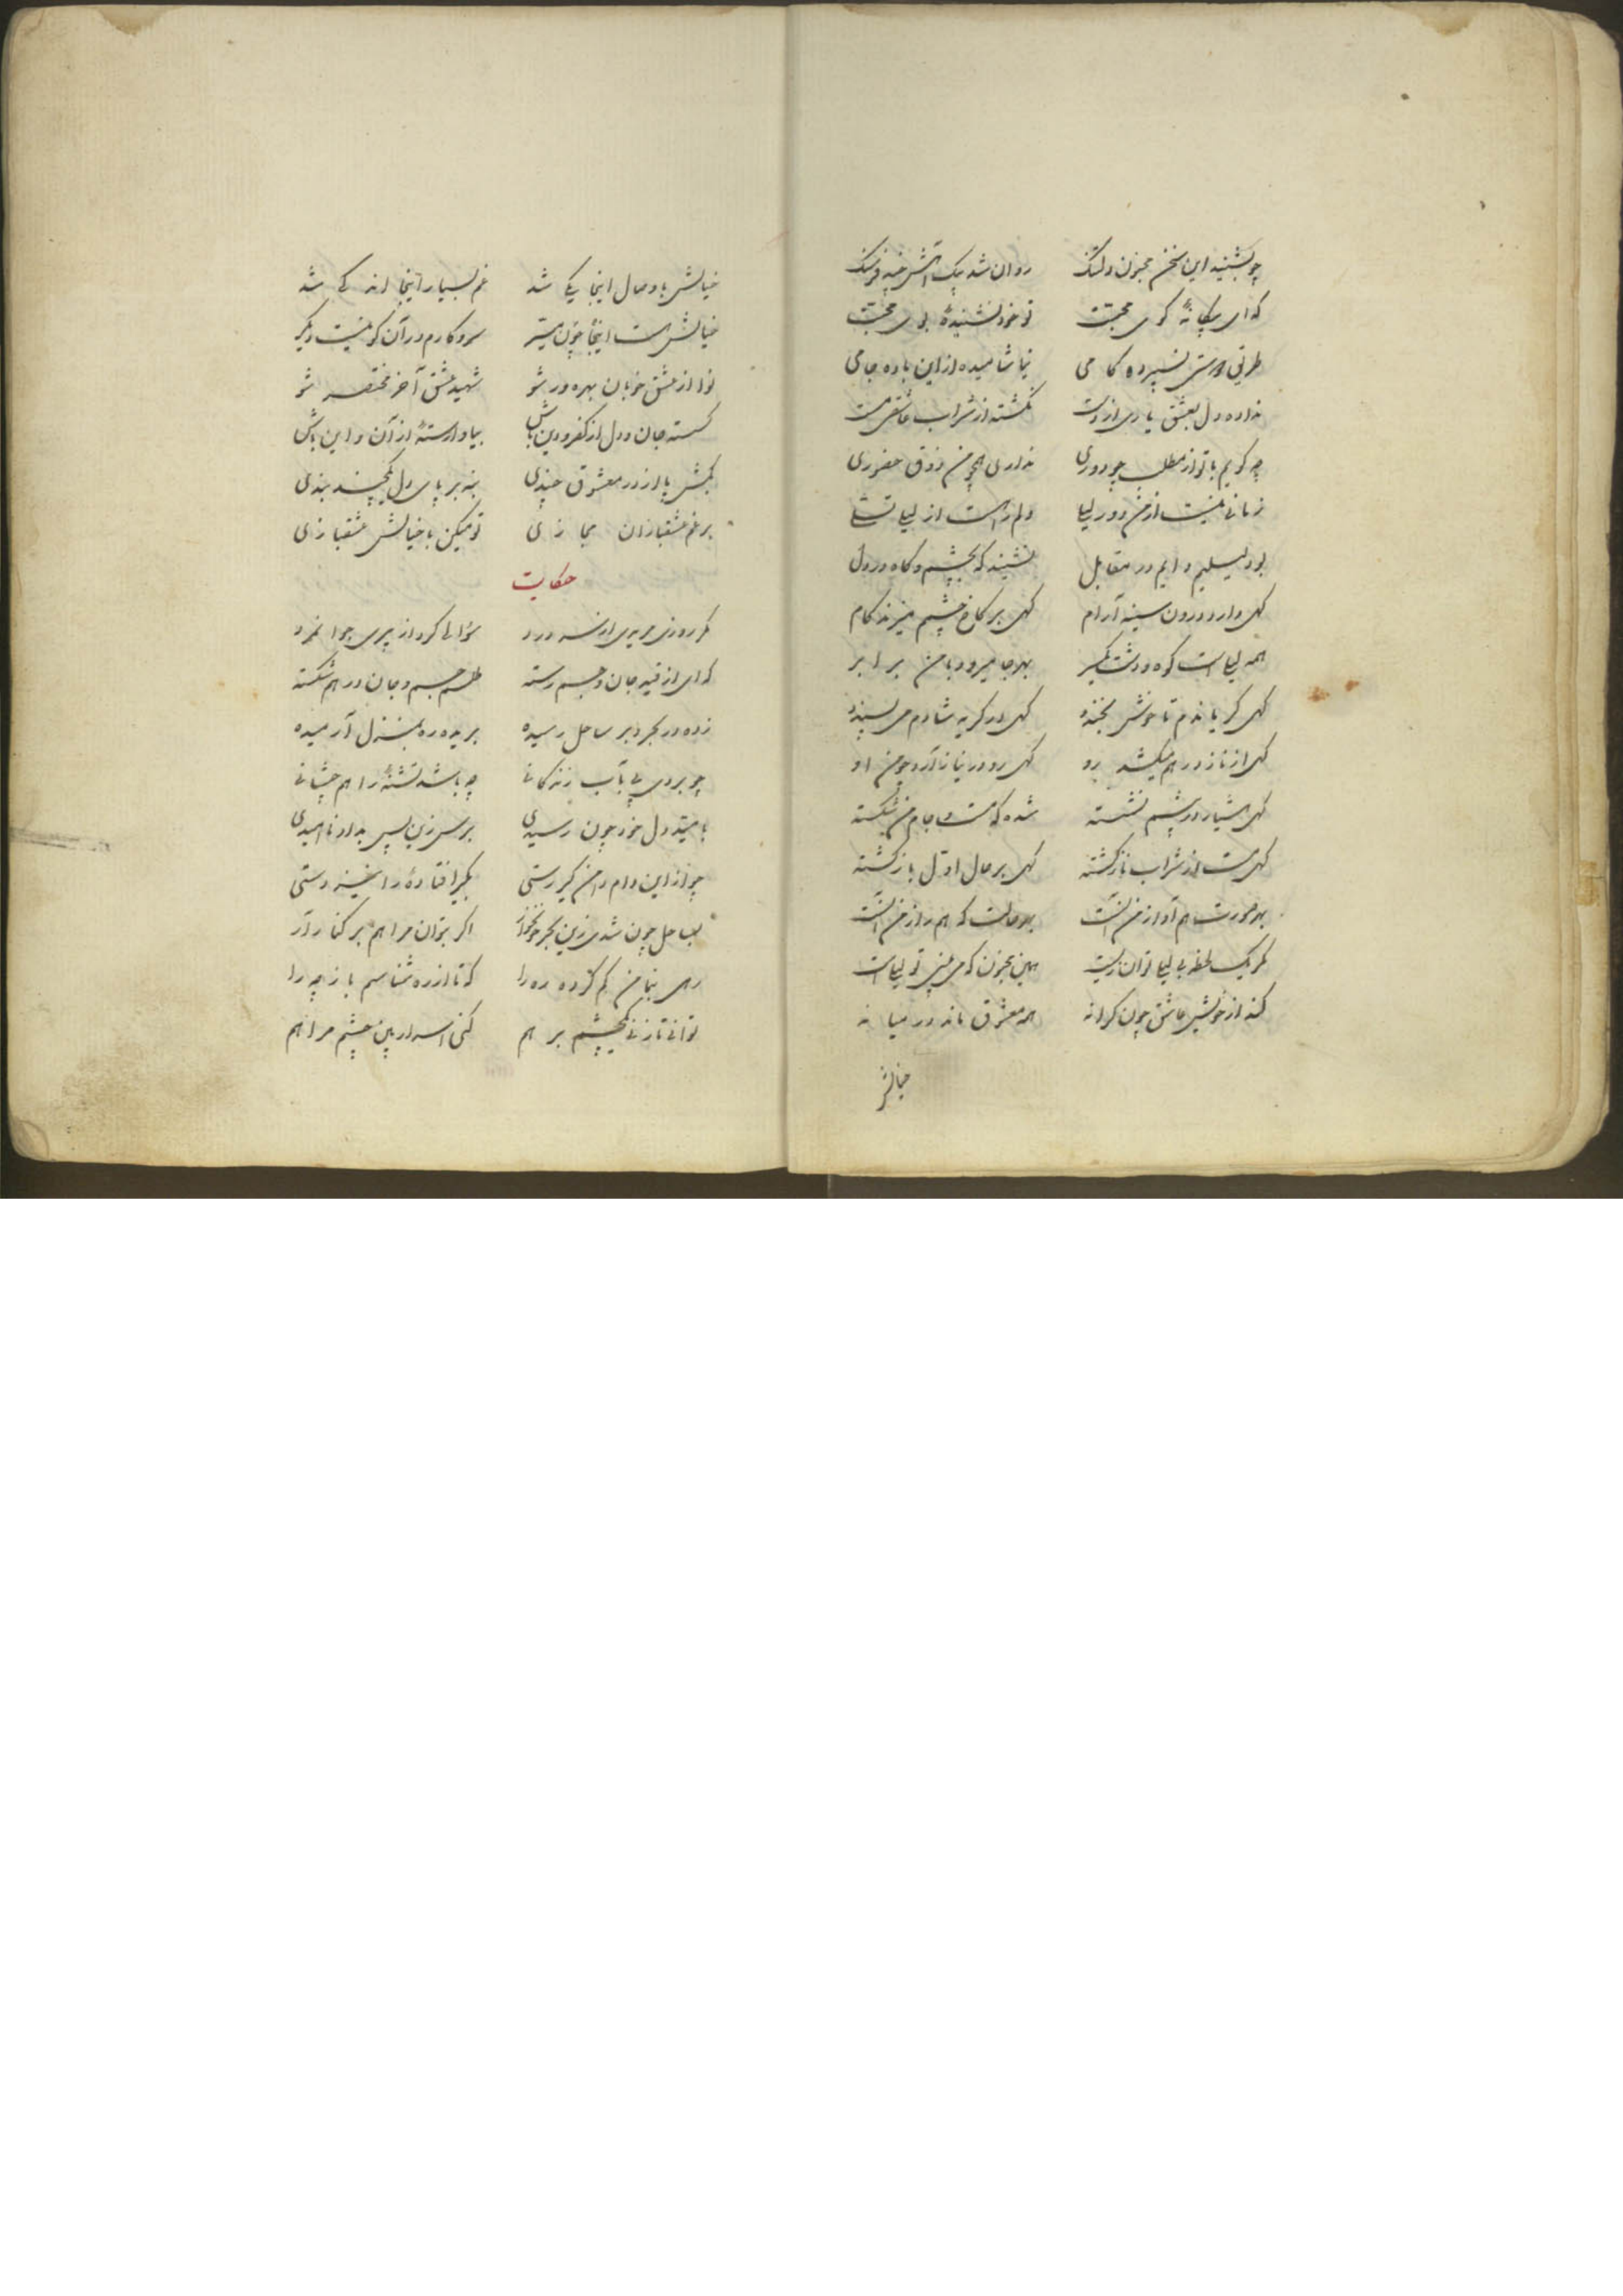 چو بشنید این سخن مجنون دلتنگ روان شد یک آتش خیز فرسنگ
که ای بیگانهٔ کوی محبت تو خود نشنیدهٔ بوی محبت
طریق دوستی نسپرده کامی نیاشامیده از این باده جامی
نداده دل بعشق یاری از دست نگشته از شراب عاشقی مست
چه گویم با تو از مطلب چو دوری نداری همچو من ذوق حضوری
زمانی نیست از من دور لیلی دلم راهست از لیلی تسلی
بود لیلیم دایم در مقابل نشیند گه بچشم و گاه در دل
گهی دارد درون سینه آرام گهی بر کاخ چشمم میزند گام
همه لیلی است کوه و دشت یکسر بهر جا میرود با من برابر
گهی گریاندم تا خوش بخندد گهی در گریه شادم می پسندد
گهی از ناز درهم میکشد رو گهی رو در نیاز آرد چو من او
گهی هشیار در پیشم نشسته شده گه مست و جام من شکسته
گهی مست از شراب ناز گشته گهی بر حال اول باز گشته
بهر صورت هم آواز من آنست بهر حالت که هم راز من آنست
مگر یک لحظه بی لیلی توان زیست همین مجنون که می بینی تو لیلی است
کند از خویش عاشق چون کرانه همه معشوق ماند در میانه
خیالش
خیالش با وصال اینجا یکی شد غم بسیار اینجا اندکی شد
خیالش هست اینجا چون میسر سر و کارم در آن کو نیست دیگر
نوا از عشق خوبان بهره ور شو شهید عشق آخر مختصر شو
گسسته جان و دل از کفر و دین باش بیا وارستهٔ از آن و این باش
بکش پا از در معشوق چندی بنه بر پای دل یکچند بندی
برغم عشقبازان مجازی تو میکن با خیالش عشقبازی
حکایت
مگر روزی مریدی از سر درد سؤالی کرد از پیری جوانمرد
که ای از قید جان و جسم رسته طلسم جسم و جان درهم شکسته
زده در بحر و بر ساحل رسیده بریده ره بمنزل آرمیده
چو بردی پی بآب زندگانی چه باشد تشنهٔ را هم چشانی
بامید دل خود چون رسیدی برس زین پس بداد ناامیدی
چو از این دام دامن گیر رستی بگیر افتادهٔ را نیز دستی
بساحل چون شدی زین بحر خونخوار اگر بتوان مرا هم بر کنار آر
رهی بنما من گم کرده ره را که تا از ره شناسم باز چه را
توانی تا زنی یکچشم بر هم کنی اسرار بین چشم مرا هم